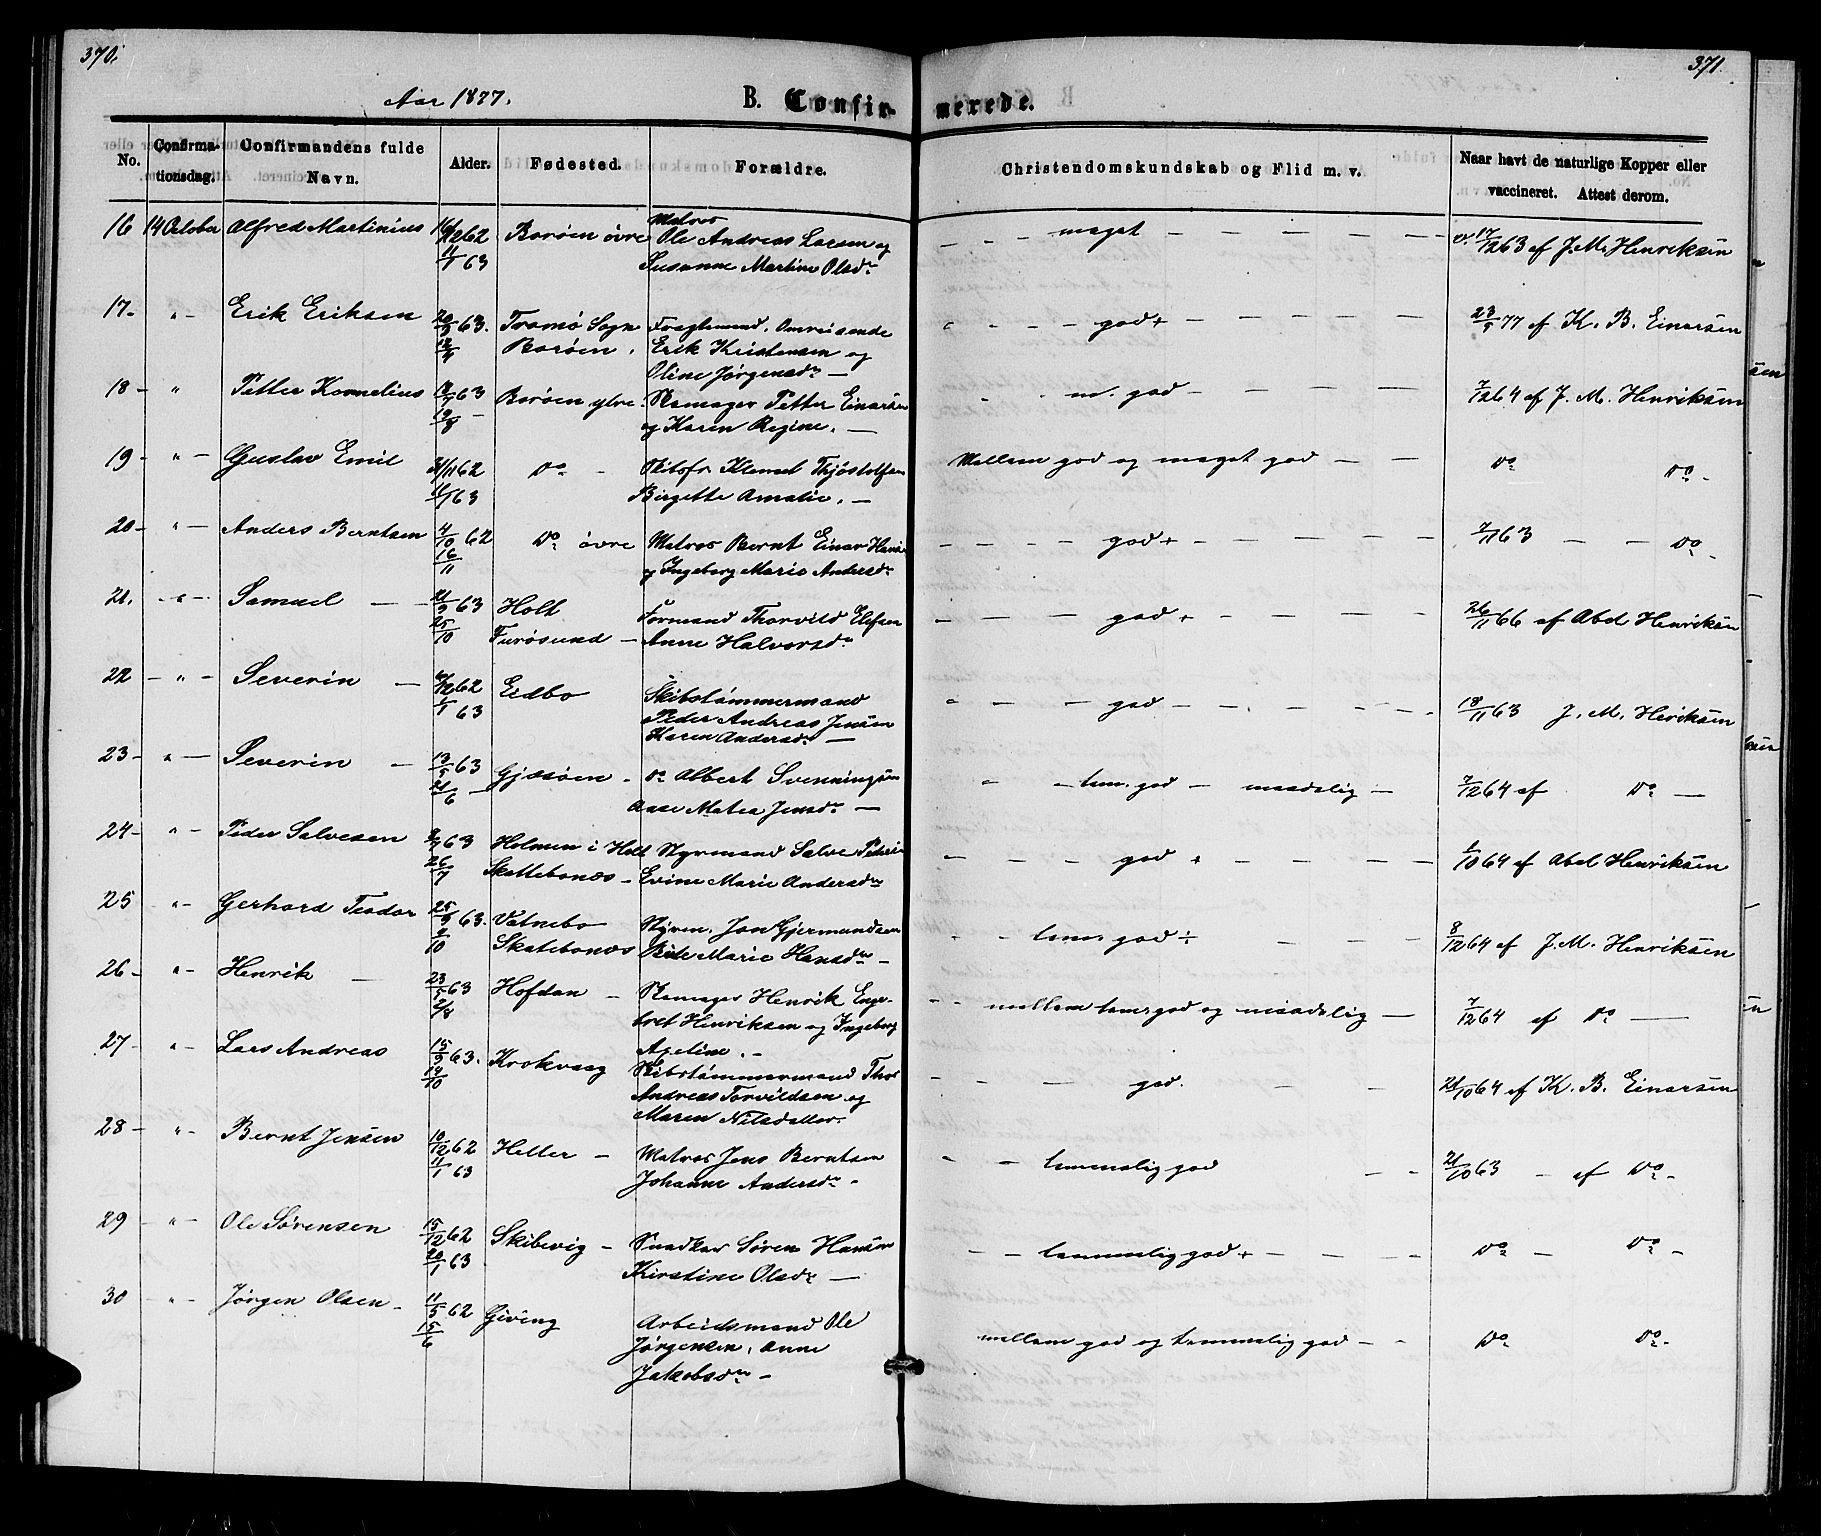 370.
371.
Aar 1877.
B. Confirmerede.
No.
Confirmationsdag.
Confirmandens fulde Navn.
Alder.
Fødested.
Forældre.
Christendomskundskab og Flid m. v.
Naar havt de naturlige Kopper eller vaccineret. Attest derom.
16 14 October Alfred Martinius 62 Borøen øvre Matros
Ole Andreas Larsen og
11/1 63 Susanne Martine Olsdr
meget v. 17/12 63 af J. M. Henriksen
17- " - Erik Eriksen 63. Tromø Sogn Omreisende
Borøen. Erik Kristensen og
Oline Jørgensdr —
god + 23/5 77 af K. B. Einarsen
18 - " Petter Kornelius 63 Borøen ytre Skomager Petter Einarsen
og Karen Regine. —
m. god - 7/12 64 af J. M. Henriksen
19 - " - Gustav Emil 62 Do - Klemet Thjøstolfsen
63 Birgette Amalie. —
Mellem god og meget god - - Do Do -
20- " - Anders Berntsen 4/10 62 Do øvre Matros Bernt Einar
16/11 og Ingeborg Marie Andersdr
god + 7/11 63 - - Do -
21. - " - Samuel — 21/9 63 Holt Formand Thorvild Elefsen
25/10 Furøsund — Anne Halvorsdr
god + 26/11 66 af Abel Henriksen
22 - " - Severin — 62 Eidbo Skibstømmermand
63 Peder Andreas Jensen
Karen Andersdr —
god - 18/11 63 J. M. Henriksen
23- " - Severin — 13/5 63 Gjessøen - Do Albert Svenningsen
21/6 - Aase Matea Jensdr —
tem. god - maadelig - 7/12 64 af Do —
24- " - Peder Salvesen 63 Holmen i Holt Styrmand Salve
26/7 Skattebonæs - Evine Marie Andersdr
god + 1/10 64 af Abel Henriksen
25 " - Gerhard Teodor 25/9 63. Vatnebo Styrm. Jon Gjermundsen
Skatebonæs Marie Hansdr -
tem. god ÷ 8/12 64 af J. M. Henriksen
26 - " - Henrik — 23/5 63 Hofdan - Skomager Henrik Enge-
2/8 bret Henriksen og Ingeborg
Axeline. -
mellem tem. god og maadelig — 7/12 64 af Do —
27 - " - Lars Andreas 15/9 63. Krokvaag Skibstømmermand
14/10 Andreas Torvildsen og
Maren Nilsdatter.
god. 21/10 64 af K. B. Einarsen
28 - " - Bernt Jensen 10/12 62 Heller - Matros Jens Berntsen
11/1 63 Johanne Andersdr -
temmelig god 21/10 63 - af Do -
29 - " - Ole Sørensen 15/12 62 Skibevig - Snedker Søren Hansen
20/1 63 Kirstine Olsdr —
temmelig god + Do - Do -
30 - " - Jørgen Olsen - 11/5 62 Giving Arbeidsmand Ole
15/6 Jørgensen. Anne
Jakobsdr -
mellem god og temmelig god - - Do Do -